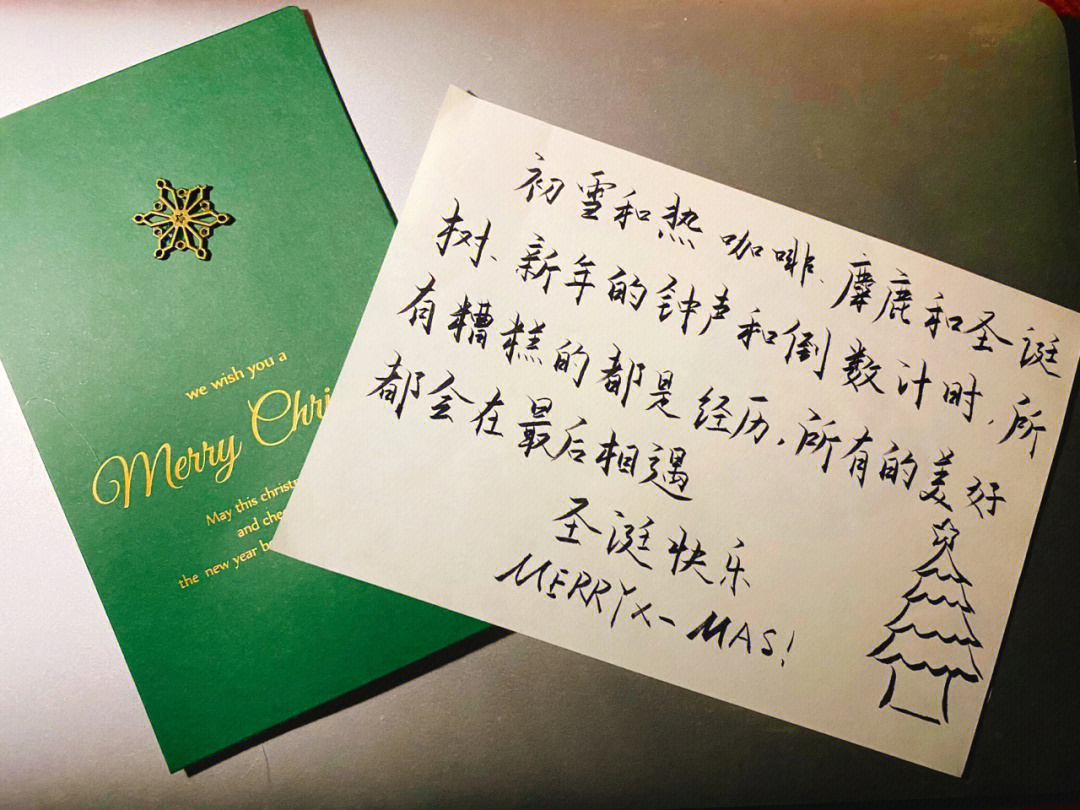 we wish you a
Merry Chri
May this christ
and che
the new year be
初雪和热咖啡、麋鹿和圣诞
树、新年的钟声和倒数计时,所
有糟糕的都是经历,所有的美好
都会在最后相遇
圣诞快乐
MERRY X-MAS!